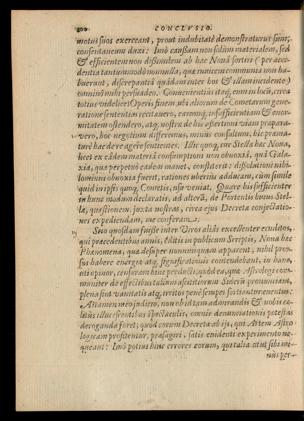 300 CONCLVSIO.
motus suos exerceant, prout indubitatè demonstraturus sum;
consentaneum duxi: Imò causam non solùm materialem, sed
& efficientem non dissimilem ab hac Nova sortiri (per acci-
dentia tantummodò nonnulla, quæ in vicem communia non ha-
buerunt, discrepantis quidàm inter hos & illam incidente)
omninò mihi persuadeo. Convenientius itaq; cum in loco, circa
totius videlicet Operis finem, ubi aliorum de Cometarum gene-
ratione sententias recitavero,
ostendero, atq; nostra de his assertione viam præpara-
vero, hoc negotium differemus, minùs consultum, hîc præma-
turè hac de re agere sentientes. Illic quoq; cur Stella hæc Nova,
licet ex eâdem materiâ
xia, quæ perpetuò eadem manet, constiterit; dissolutioni nihi-
lominùs obnoxia fuerit, rationes uberiùs adducam, cùm simile
quid in ipsis quoq; Cometis, usu veniat. Quare his sufficienter
in hunc modum declaratis, ad alterā, de Portentis hujus Stel-
læ, quæstionem, juxta nostras, circa ejus Decreta conjectatio-
nes expediendam, me conferam.
Scio quosdam fuisse inter Viros aliàs excellenter eruditos,
qui præcedentibus annis, editis in publicum Scriptis, Nova hæc
Phænomena, quæ desuper nonnunquam apparent, nihil pror-
sus habere energiæ atq; significationis contendebant, in hanc,
uti opinor, censuram hinc perducti, quòd ea, quæ Astrologi com-
muniter de effectibus talium adscititiorum Siderū pronunciant,
plena sint vanitatis atq; irritos penè semper sortiantur eventus:
Attamen meo judicio, non ob id tam admirandis & nobis cæ-
litùs illucescentibus spectaculis, omnis denunciationis potestas
deroganda foret; quòd eorum Decreta ab ijs, qui Artem Astro-
logicam profitentur, præsagiri, satis evidenti experimento ne-
queant: Imò potiùs hinc errores eorum, qui talia
nùs per-